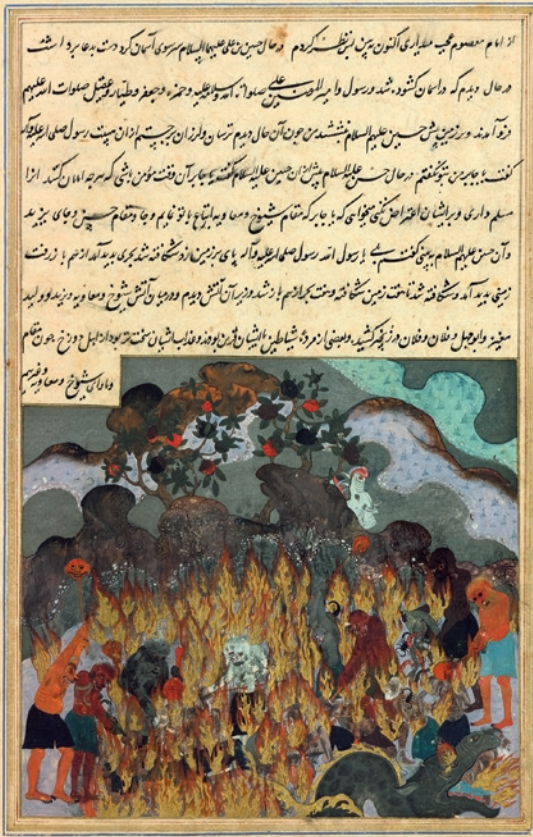 از امام معصوم عجب میداری اکنون ببین پس نظر کردم در حال حسین بن علی علیهما السلام سر سوی آسمان کرد دست بدعا برداشت
در حال دیدم که در آسمان کشوده شد و رسول و امیر المومنین علی صلوات الله و سلامه علیه و حمزه و جعفر طیار و عقیل صلوات الله علیهم
فرو آمدند و بر زمین پیش حسین علیهم السلام بنشستند من چون آن حال دیدم ترسان و لرزان برجستم از آن هیبت رسول صلی الله علیه و آله
گفت یا جابر من بتو نگفتم در حال حسن علیه السلام پیش از آن حسین علیه السلام گفت یا جابر آن وقت مؤمن باشی که هر چه امامان کنند آنرا
مسلم داری و بر ایشان اعتراض نکنی میخواهی که یا جابر که مقام شیوخ و معاویه اتباع با تو نمایم و جاء و مقام حسین و جای یزید
و آن حسین علیهم السلام ببینی گفتم بلی یا رسول الله رسول صلی الله علیه و آله پای بر زمین زد و شکافته شد بحری بدید آمد از هم باز رفت
زمینی بدید آمد و شکافته شد تا هفت زمین شکافته و هفت بحر از هم باز شد و زیر آن آتش دیدم و در میان آتش شیوخ و معاویه و یزید و ولید
مغیره و ابوجهل و فلان و فلان در زنجیر کشید و بعضی از مرده شیاطین با ایشان قرین بودند و عذاب ایشان سخت تر بود از اهل دوزخ چون مقام
و ماوای شیوخ و معاویه